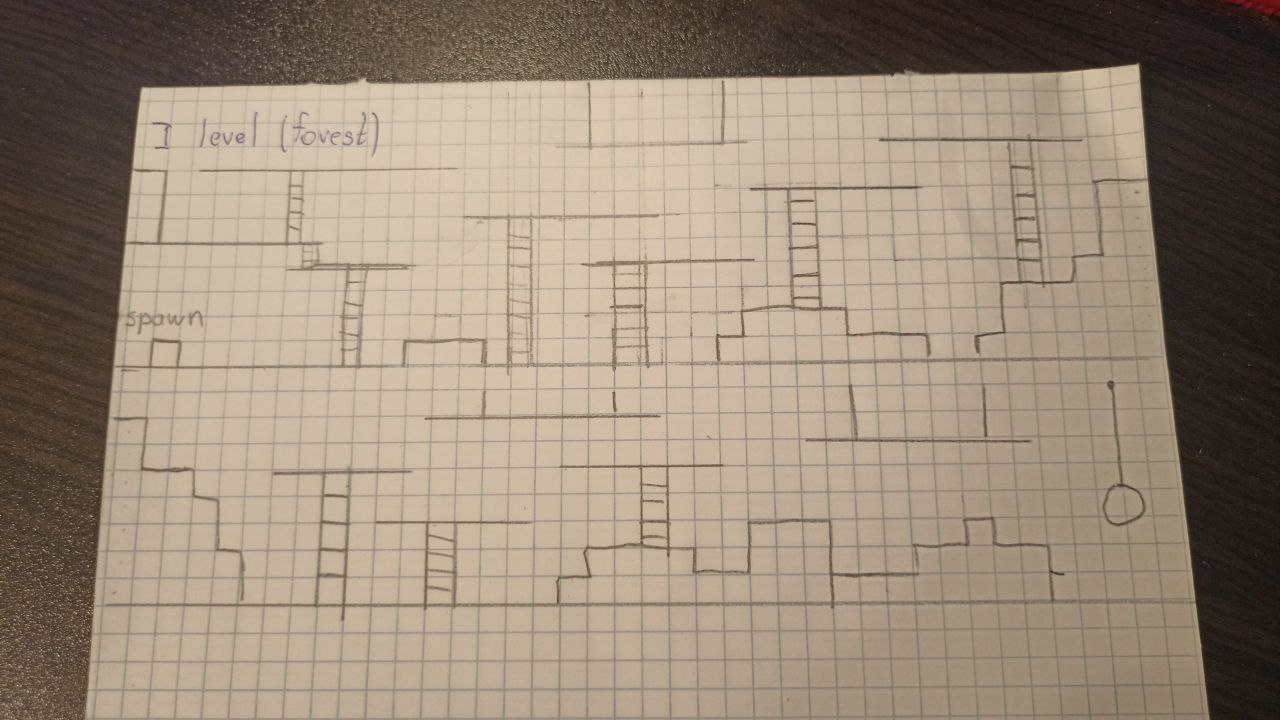 I level (forest)
spawn